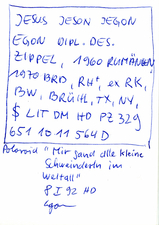 JESUS JESON JEGON
EGON DIPL. DES.
ZIPPEL, 1960 RUMÄNGEN
1970 BRD, RH+, ex RK,
BW, BRÜHL, TX, NY,
$ LIT DM HD PZ 329
651 10 11 564 D
Poloroid "Mir sand alle kleine
Schweinderln im
Weltall"
8 I 92 HD
Egon